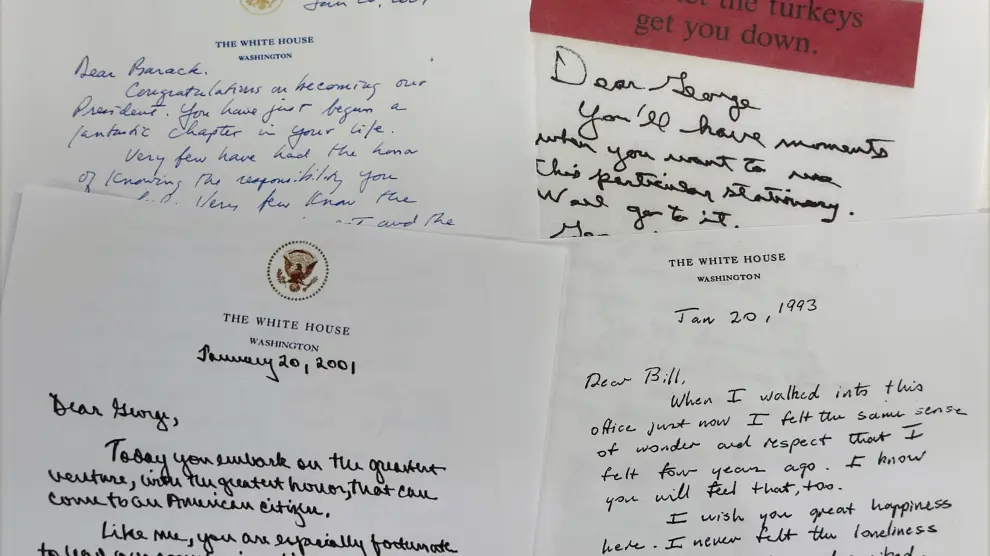 THE WHITE HOUSE
WASHINGTON
Dear Barack.
Congratulations on becoming our
President. You have just begun a
fantastic chapter in your life.
Very few have had the honor
of knowing the responsibility you
Very few know the
and the
the turkeys
get you down.
Dear George
You'll have moments
when you want to use
this particular stationary.
Well go to it.
THE WHITE HOUSE
WASHINGTON
January 20, 2001
Dear George,
Today you embark on the greatest
venture, with the greatest honor, that can
come to an American citizen.
Like me, you are especially fortunate
to lead our
THE WHITE HOUSE
WASHINGTON
Jan 20, 1993
Dear Bill,
When I walked into this
office just now I felt the same sense
of wonder and respect that I
felt four years ago. I know
you will feel that, too.
I wish you great happiness
here. I never felt the loneliness